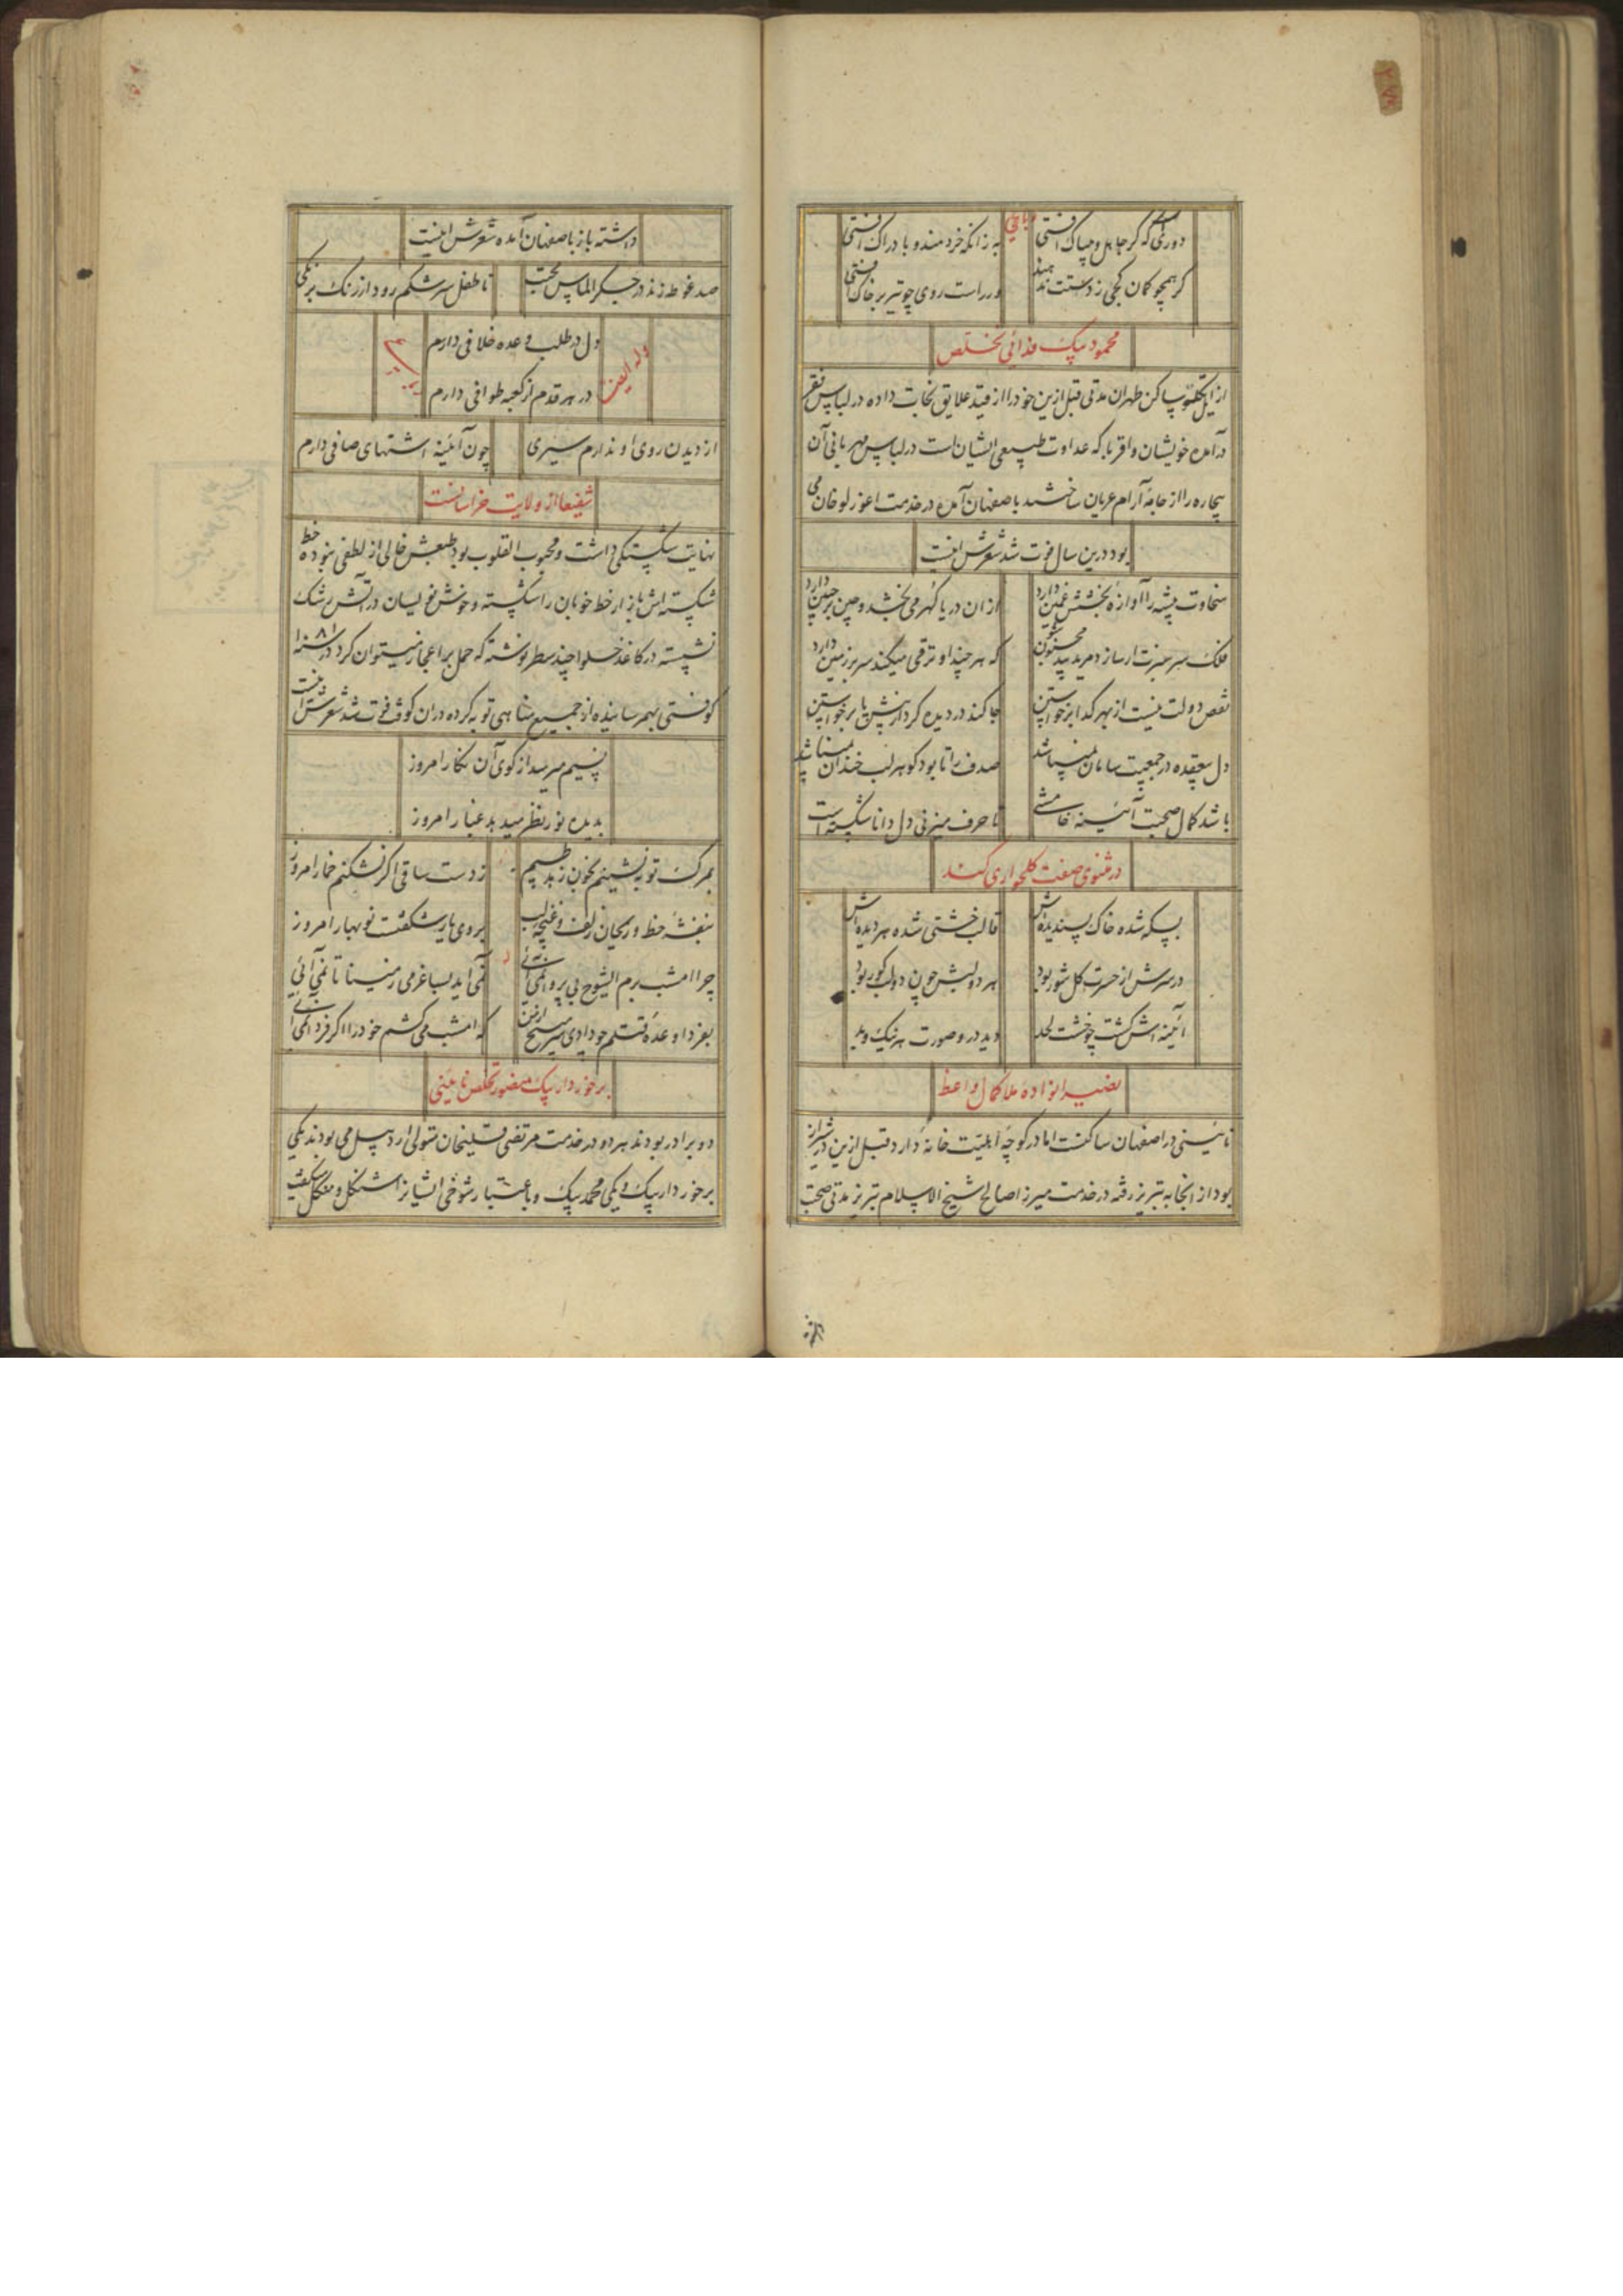 رباعی
دوری که گر جاهل و بیباک افتی به زانکه خردمند و با دراک افتی
گر همچو کمان کجی ز دستت ندهند ور راست روی چو تیر بر خاک افتی
محمود بیک فدائی تخلص
از ایل تکلو ساکن طهران مدتی قبل ازین خود را از قید علایق نجات داده در لباس فقر
درآمده خویشان و اقربا که عداوت طبیعی ایشان است در لباس مهربانی آن
بیچاره را از جامه آرام عریان ساختند باصفهان آمده در خدمت اعوزلو خان می
بود درین سال فوت شد شعرش اینست
سخاوت پیشه را آوازه بخشش غمین دارد ازان دریا گهر می بخشد و چین بر جبین دارد
فلک سر سبزتر سازد مرید بید مجنون که هر چند او ترقی میکند سر بر زمین دارد
نقص دولت نیست از بهر گدا برخواستن جا کند در دیده گرد از پیش پا برخواستن
دل بیعقده در جمعیت سامان نمیباشد صدف را تا بود گوهر لب خندان نمیباشد
باشد کمال صحبت آئینه خامشی تا حرف میزنی دل دانا شکسته است
در مثنوی صفت کلخواری کند
بسکه شده خاک پسندیده اش قالب خشتی شده هر دیده اش
در سرش از حسرت گل شور بود هر دو لبش چون دو لب گور بود
آئینه اش گشت چو خشت لحد دید در و صورت هر نیک و بد
نصیرا نواده ملا کمال واعظ
نائینی در اصفهان ساکنست اما در کوچه اهلیت خانه دارد قبل ازین در شیراز
بود از انجا به تبریز رفته در خدمت میرزا صالح شیخ الاسلام تبریز مدتی صحبت
داشته باز باصفهان آمده شعرش اینست
صد غوطه زند در جگر الماس تا طفل سرشکم رود از رنگ برنگی
وله ایضا
دل در طلب وعده خلافی دارم
در هر قدم از کعبه طوافی دارم
از دیدن روی او ندارم سیری چون آئینه اشتهای صافی دارم
شفیعا از ولایت خراسانست
نهایت شکستگی داشت و محبوب القلوب بود طبعش خالی از لطفی نبوده خط
شکسته اش بازار خط خوبان را شکسته و خوش نویسان در آتش رشک
نشسته در کاغذ حلوا چند سطر نوشته که حمل بر اعجاز میتوان کرد در سنه ۱۰۸۱
کوفتی بهم رسانیده از جمیع مناهی توبه کرده در ان کوفت فوت شد شعرش اینست
نسیم میرسد از کوی آن نگار امروز
بدیده نور نظر میدهد غبار امروز
بمرگ توبه نشینم بخون زهد طپم ز دست ساقی اگر نشکنم خمار امروز
بنفشه خط و ریحان زلف و غنچه لب بروی یار شکفتست نوبهار امروز
چرا امشب بزم ایشوخ بی پروا نمی آئی نمی آید بساغر می ز مینا تا نمی آئی
بفردا وعده قتلم چو دادی که امشب می کشم خود را اگر فردا نمی آئی
برخوردار بیک منصور تخلص نائینی
دو برادر بودند هر دو در خدمت مرتضی قلیخان متولی اردبیل می بودند یکی
برخوردار بیک و یکی محمد بیک و باعتبار شوخی ایشانرا اشنگل و منگل